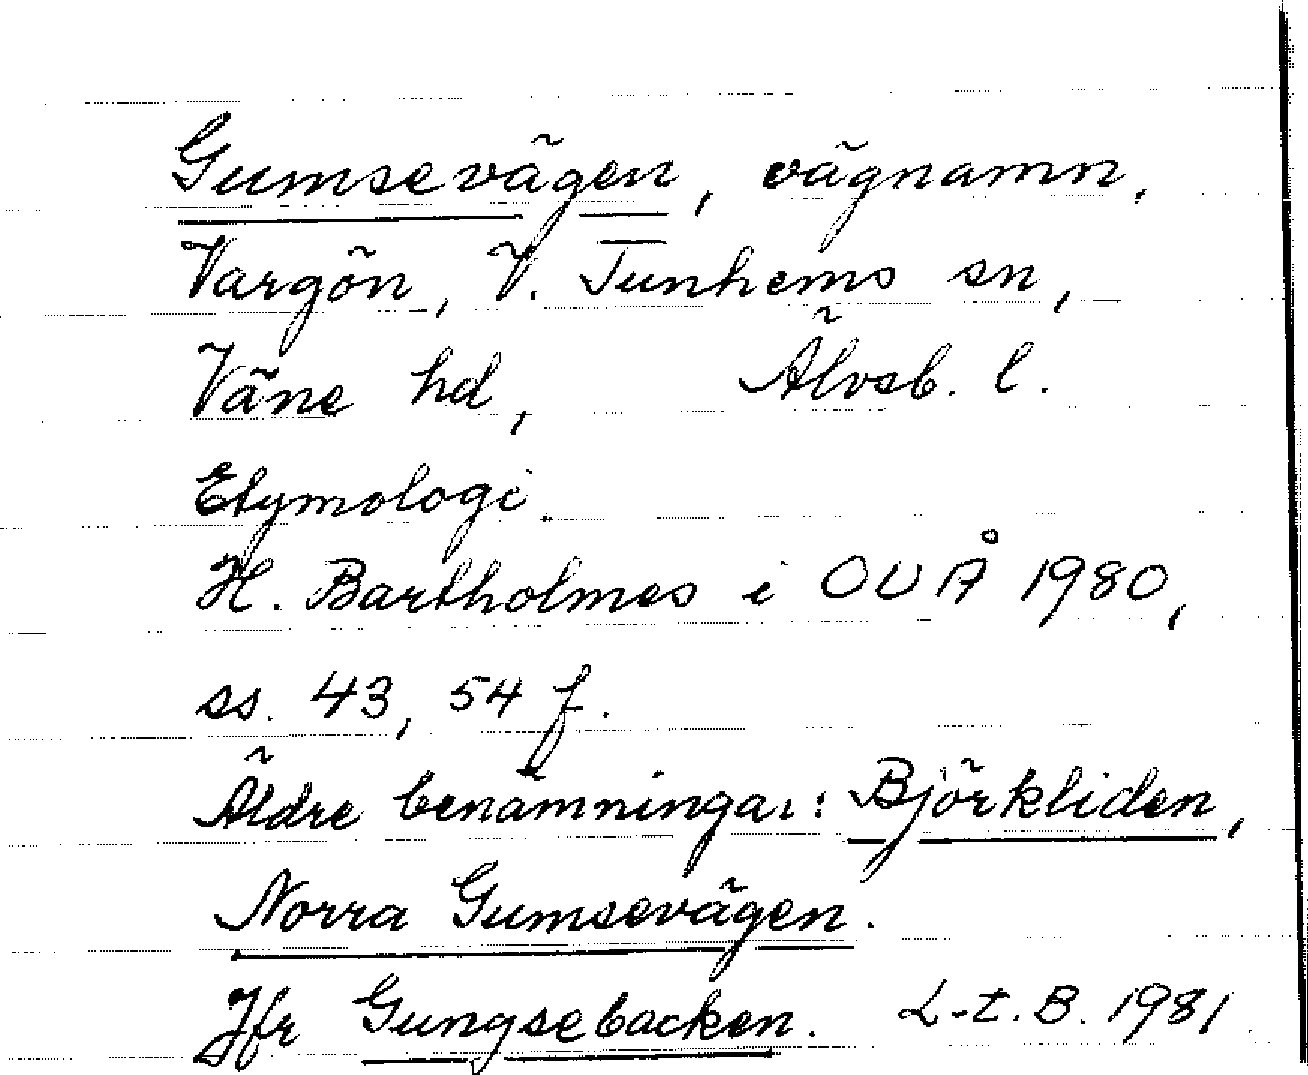 Gumsevägen, vägnamn,
Vargön, V. Tunhems sn,
Väne hd, Älvsb. l.
Etymologi.
H. Bartholmes i OUÅ 1980,
ss. 43, 54 f.
Äldre benämningar: Björkliden,
Norra Gumsevägen.
Jfr Gungsebacken. L-t. B. 1981